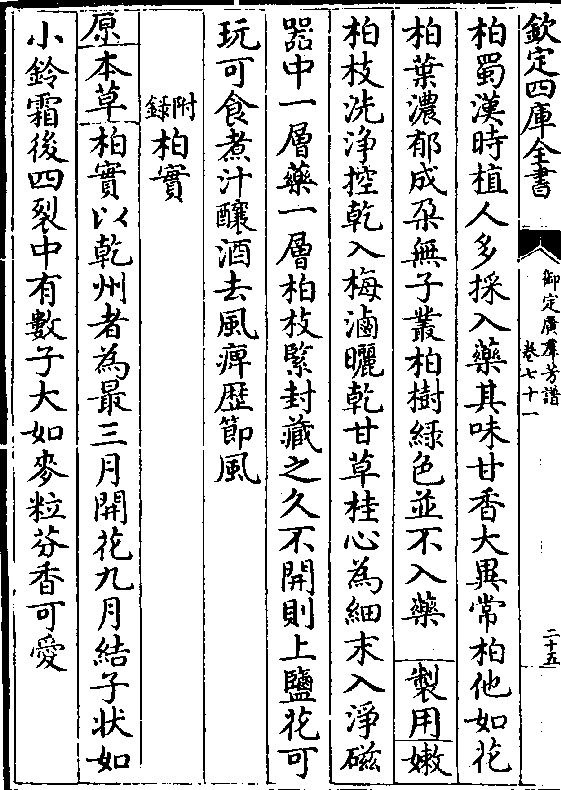 欽定四庫全書
御定廣羣芳譜
卷七十一
二十五
柏蜀漢時植人多採入藥其味甘香大異常柏他如花
柏葉濃郁成朶無子叢柏樹綠色並不入藥 製用 嫩
柏枝洗淨控乾入梅滷曬乾甘草桂心為細末入淨磁
器中一層藥一層柏枝緊封藏之久不開則上鹽花可
玩可食煮汁釀酒去風痺歴節風
附錄柏實
原本草 柏實以乾州者為最三月開花九月結子狀如
小鈴霜後四裂中有數子大如麥粒芬香可愛